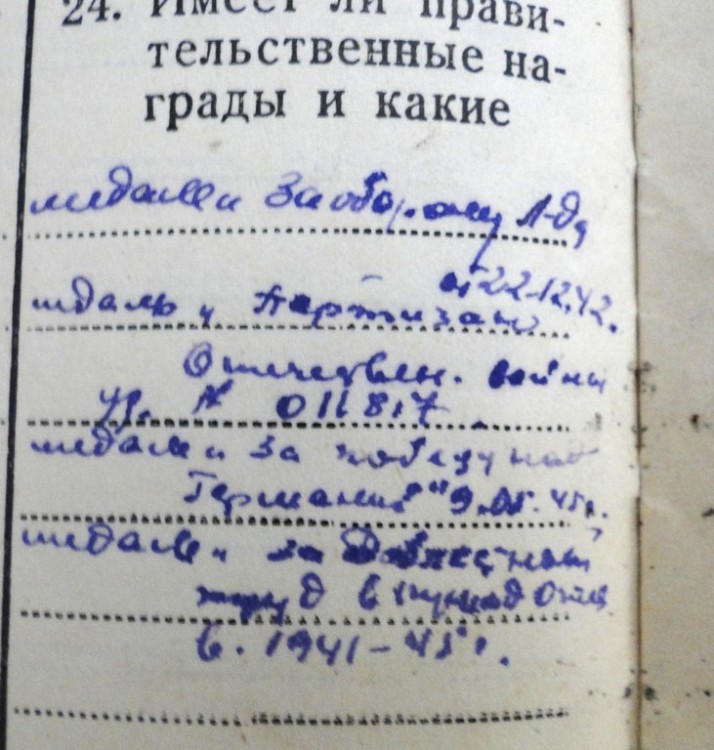 24. Имеет ли прави-
тельственные на-
грады и какие
медаль „ За оборону Л-да
от 22-12.42.
медаль „ Партизан
Отечествен. войны
Уд. № 011817
медаль „ За победу над
Германией" 9.05.45г.
медаль „ за Доблестный
труд в период Отеч
в. 1941-45г.